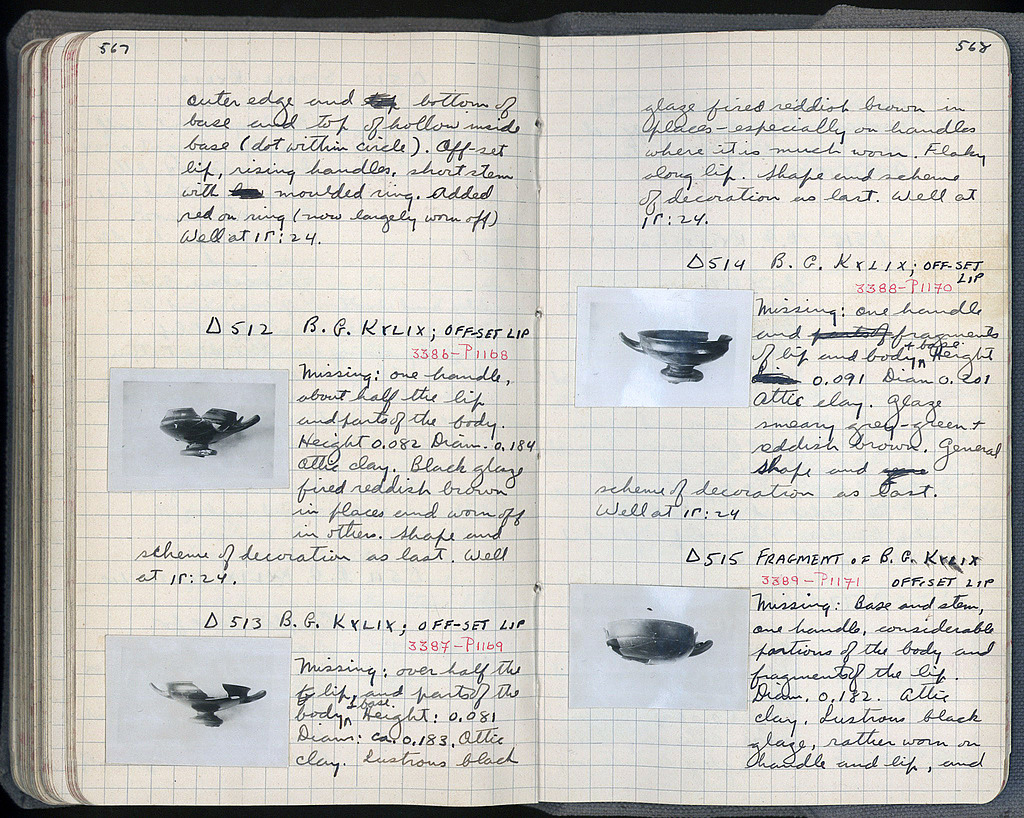 567
outer edge and bottom of
base and top of hollow inside
base (dot within circle). Off-set
lip, rising handles, short stem
with moulded ring. Added
red on ring (now largely worn off)
Well at ΙΓ:24.
Δ 512 B. G. KYLIX; OFF-SET LIP
3386-P1168
Missing: one handle,
about half the lip
and parts of the body.
Height 0.082 Diam. 0.184
Attic clay. Black glaze
fired reddish brown
in places and worn off
in others. Shape and
scheme of decoration as last. Well
at ΙΓ:24.
Δ 513 B. G. KYLIX; OFF-SET LIP
3387-P1169
Missing: over half the
lip, and parts of the
body + base. Height: 0.081
Diam: ca. 0.183. Attic
clay. Lustrous black
568
glaze fired reddish brown in
places - especially on handles
where it is much worn. Flaky
along lip. Shape and scheme
of decoration as last. Well at
ΙΓ:24.
Δ 514 B. G. KYLIX; OFF-SET
LIP
3388-P1170
Missing: one handle
and parts of fragments
of lip and body + base. Height
0.091 Diam 0.201
Attic clay. Glaze
smeary grey-green +
reddish brown. General
shape and
scheme of decoration as last.
Well at ΙΓ:24
Δ 515 FRAGMENT OF B. G. KYLIX
3389-P1171 OFF-SET LIP
Missing: Base and stem,
one handle, considerable
portions of the body and
fragment of the lip.
Diam. 0.182. Attic
clay. Lustrous black
glaze, rather worn on
handle and lip, and